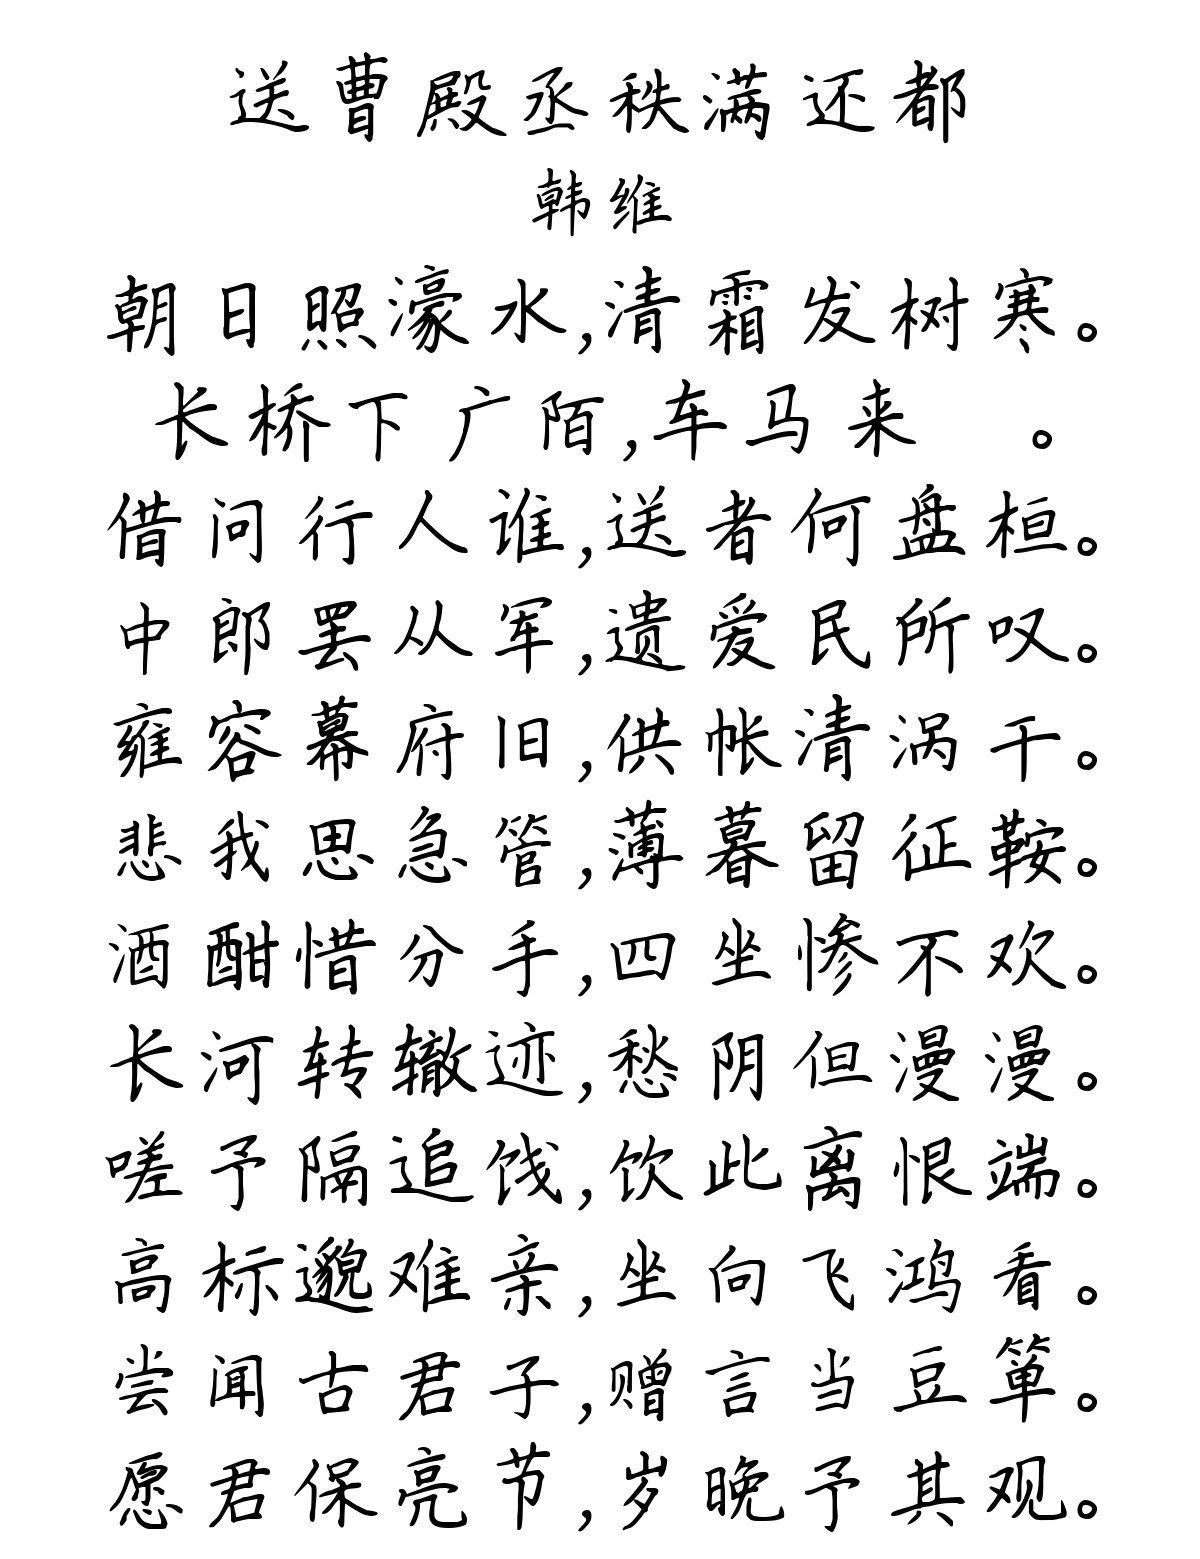 送曹殿丞秩满还都
韩维
朝日照濠水,清霜发树寒。
长桥下广陌,车马来 。
借问行人谁,送者何盘桓。
中郎罢从军,遗爱民所叹。
雍容幕府旧,供帐清涡干。
悲我思急管,薄暮留征鞍。
酒酣惜分手,四坐惨不欢。
长河转辙迹,愁阴但漫漫。
嗟予隔追饯,饮此离恨端。
高标邈难亲,坐向飞鸿看。
尝闻古君子,赠言当豆箪。
愿君保亮节,岁晚予其观。